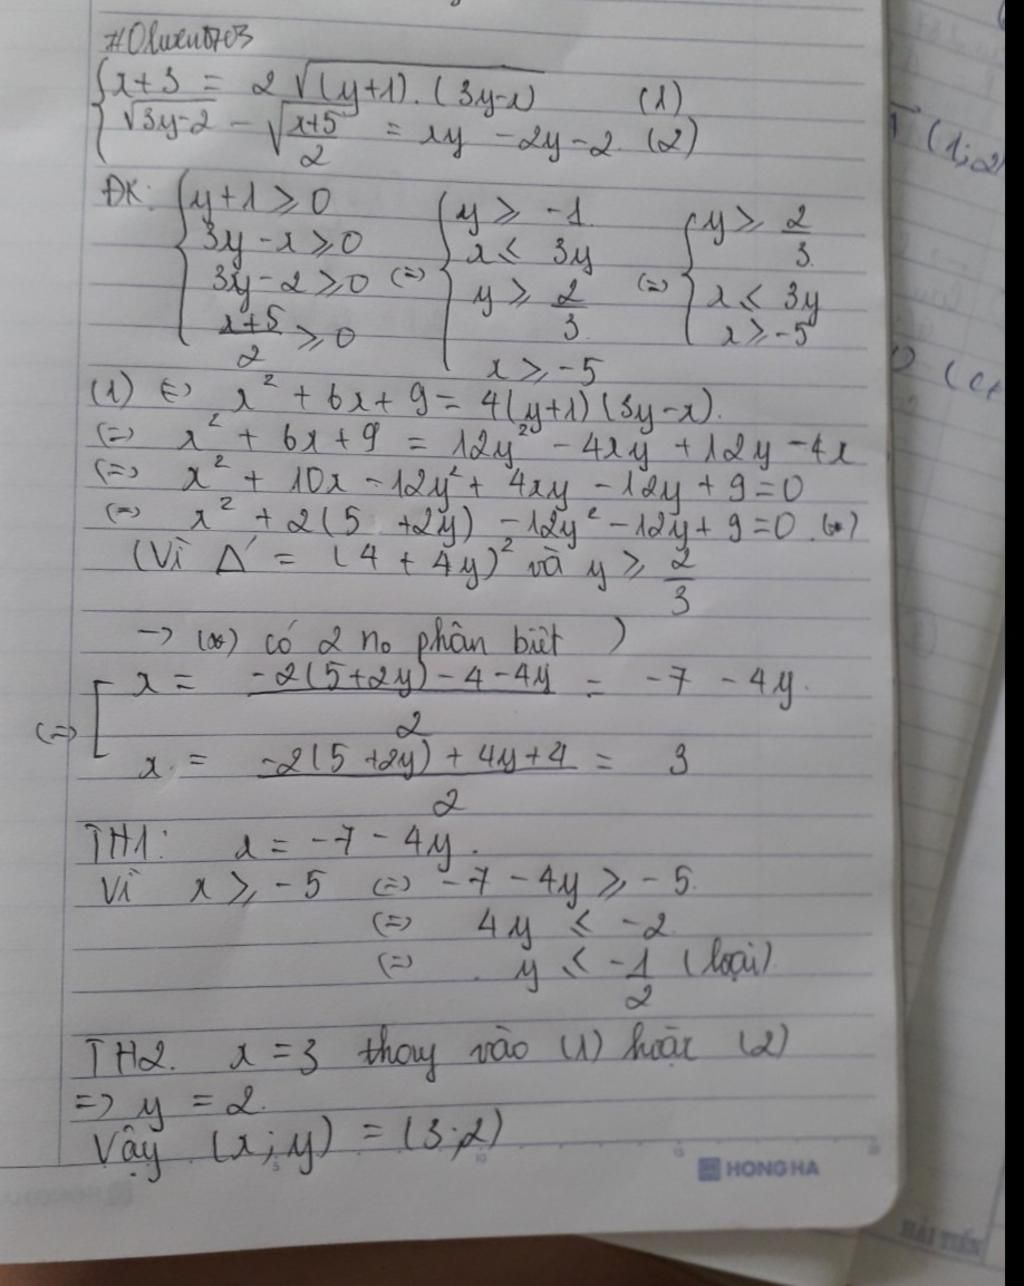 #Oluwu0703
x+3 = 2√(y+1).(3y-x) (1)
√3y-2 - √x+5/2 = xy - 2y - 2. (2)
ĐK: y+1 ≥ 0 y ≥ -1 y ≥ 2/3
3y-x ≥ 0 x ≤ 3y
3y-2 ≥ 0 (=) y ≥ 2/3 (=) x ≤ 3y
x+5/2 ≥ 0 x ≥ -5 x ≥ -5
(1) (=) x² + 6x + 9 = 4(y+1)(3y-x).
(=) x² + 6x + 9 = 12y² - 4xy + 12y - 4x
(=) x² + 10x - 12y² + 4xy - 12y + 9 = 0
(=) x² + 2(5 +2y) - 12y² - 12y + 9 = 0. (*)
(Vì Δ' = (4 + 4y)² và y ≥ 2/3
-> (*) có 2 no phân biệt )
(=) x = -2(5+2y) - 4 - 4y/2 = -7 - 4y.
x = -2(5 +2y) + 4y + 4/2 = 3
TH1: x = -7 - 4y.
Vì x ≥ -5 (=) -7 - 4y ≥ -5.
(=) 4y ≤ -2
(=) y ≤ -1/2 (loại)
TH2. x = 3 thay vào (1) hoặc (2)
=> y = 2.
Vậy (x;y) = (3;2)
HONG HA